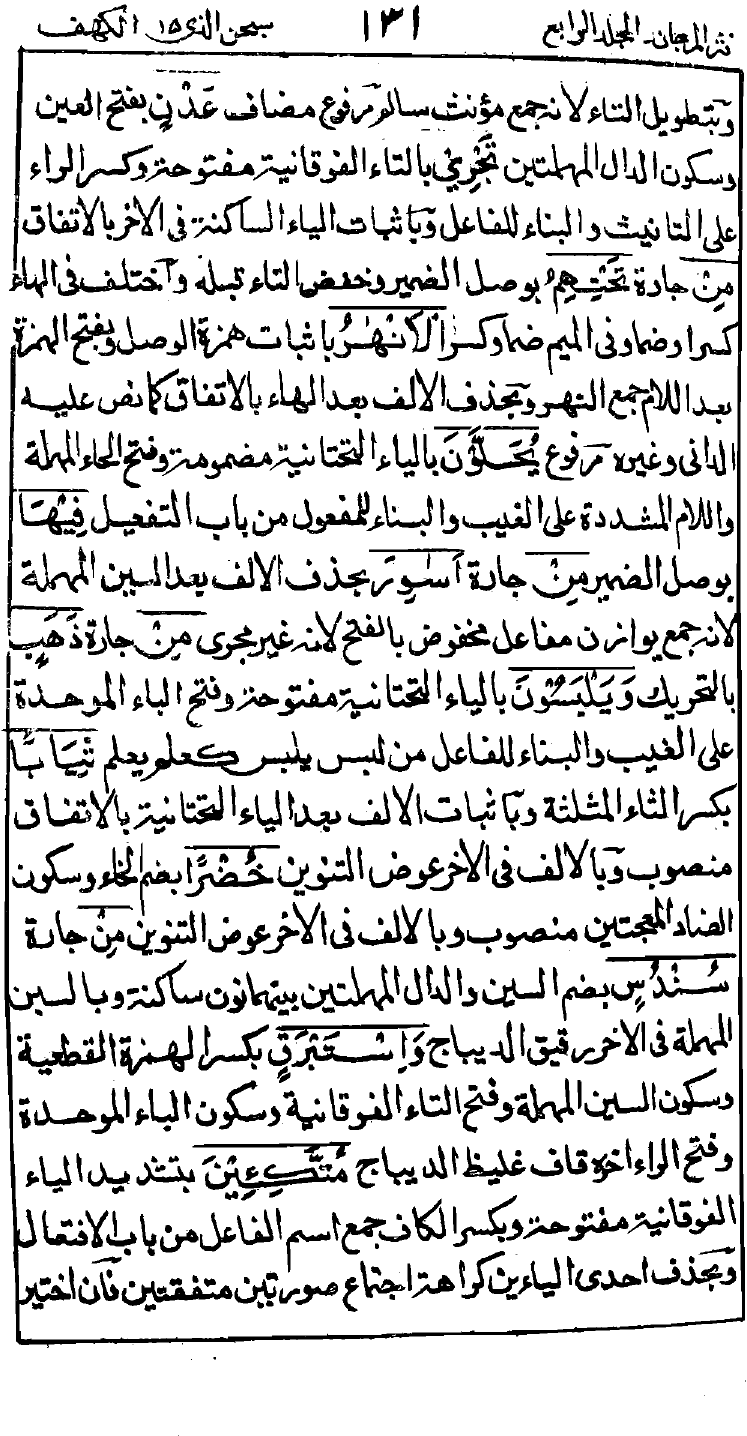 نثر المرجان۔ المجلد الرابع ١٣١ سبحن الذی ١٥ الکهف
وبتطويل التاء لانه جمع مؤنث سالم مرفوع مضاف عَدْنٍ بفتح العين
وسكون الدال المهملتين تَجْرِيْ بالتاء الفوقانية مفتوحة وكسر الراء
على التانيث والبناء للفاعل وباثبات الياء الساكنة في الاخر بالاتفاق
مِنْ جارة تَحْتِهِمُ بوصل الضمير وخفض التاء قبله واختلف في الهاء
كسرا وضما وفى الميم ضما وكسرا الْاَنْهٰرُ باثبات همزة الوصل وبفتح الهمزة
بعد اللام جمع النهر وبحذف الالف بعد الهاء بالاتفاق كما نص عليه
الدانى وغيره مرفوع يُحَلَّوْنَ بالياء التحتانية مضمومة وفتح الحاء المهملة
واللام المشددة على الغيب والبناء للمفعول من باب التفعيل فِيْهَا
بوصل الضمير مِنْ جارة اَسٰوِرَ بحذف الالف بعد السين المهملة
لانه جمع يوازن مفاعل مخفوض بالفتح لانه غير مجرى مِنْ جارة ذَهَبٍ
بالتحريك وَيَلْبَسُوْنَ بالياء التحتانية مفتوحة وفتح الباء الموحدة
على الغيب والبناء للفاعل من لبس يلبس كعلم يعلم ثِيَابًا
بكسر الثاء المثلثة وباثبات الالف بعد الياء التحتانية بالاتفاق
منصوب وبالالف في الاخر عوض التنوين خُضْرًا بضم الخاء وسكون
الضاد المعجمتين منصوب وبالالف في الاخر عوض التنوين مِنْ جارة
سُنْدُسٍ بضم السين والدال المهملتين بينهما نون ساكنة وبالسين
المهملة في الاخر رقيق الديباج وَاِسْتَبْرَقٍ بكسر الهمزة القطعية
وسكون السين المهملة وفتح التاء الفوقانية وسكون الباء الموحدة
وفتح الراء اخره قاف غليظ الديباج مُتَّكِـِٕيْنَ بتشديد الياء
الفوقانية مفتوحة وبكسر الكاف جمع اسم الفاعل من باب الافتعال
وبحذف احدى الياءين كراهة اجتماع صورتين متفقتين فان اختير